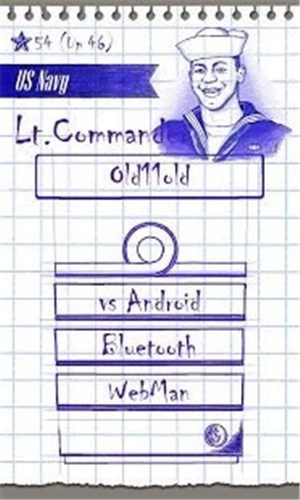 54 (Up 46)
US Navy
Lt.Commande
Old11old
vs Android
Bluetooth
WebMan